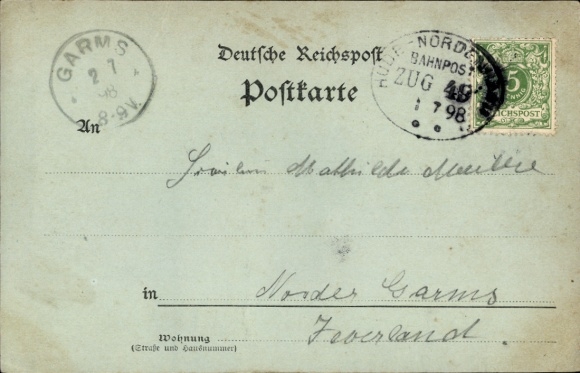 GARMS
2 7
98
8-9V.
Deutsche Reichspost
Postkarte
HUDE-NORDENHAM
BAHNPOST
ZUG 48
1 7 98
5
PFENNIG
REICHSPOST
An
Fräulein Mathilde
in Norder Garms
Jeverland.
Wohnung
(Straße und Hausnummer)